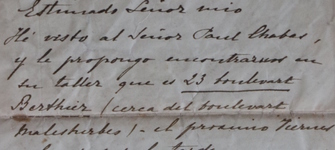 Estimado Señor mio
Hé visto al Señor Paul Chabas,
y le propongo encontrarnos en
su taller que es 23 boulevart
Berthier (cerca del boulevart
Malesherbes) - el proximo Viernes